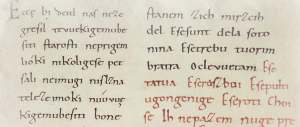 Ecce bi detd naſ neze
greſil tevuekigemube
ſiti ſtaroſti neprigem
lioki nikoligeſe pet
ſali neimugi niſlzna
telezemoki nuúvue
kigemubeſiti bone
ſtanem zich mirzcih
del Eſeſunt dela ſoto
nina Eſetrebu tuorim
bratra Oclevuetam Eſe
tatua Eſeraſboi Eſepulti
ugongenige Eſeroti Choi
se Ih nepazem nuge pre